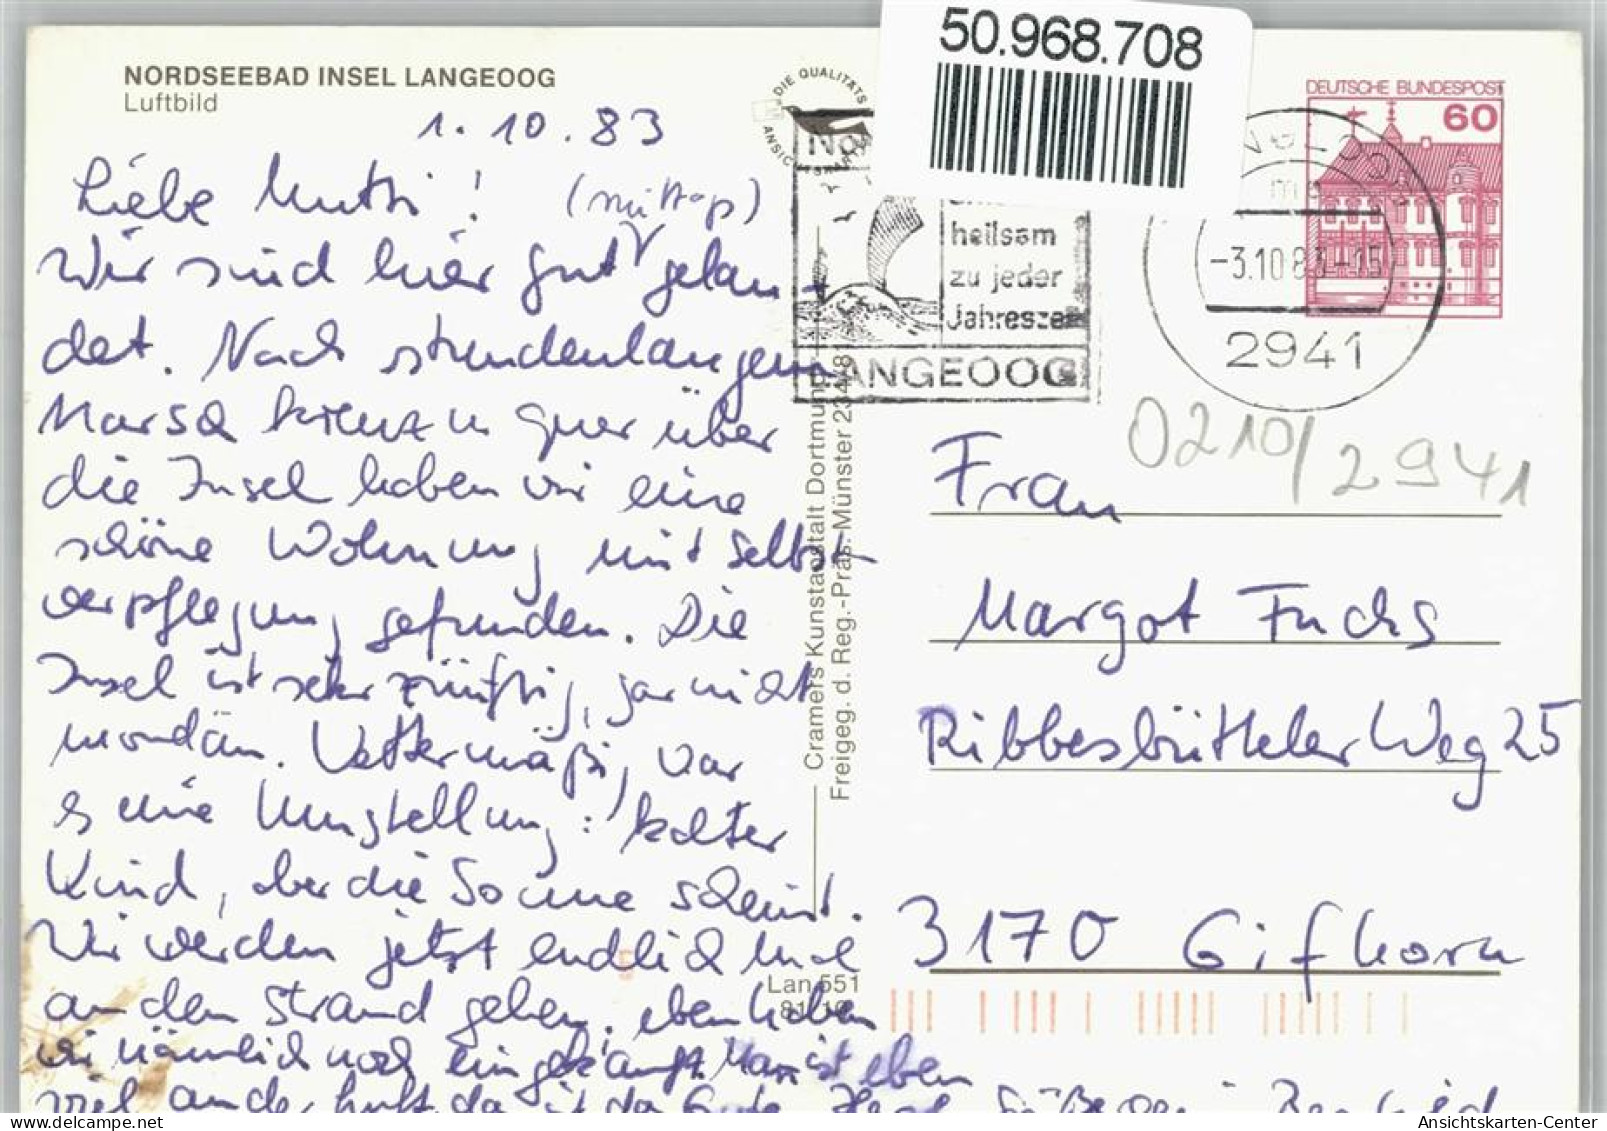 50.968.708
NORDSEEBAD INSEL LANGEOOG
Luftbild
DIE QUALITÄTS
ANSICHTSKARTE
1. 10. 83
Liebe Mutti! (mittags)
Wir sind hier gut gelan-
det. Nach stundenlangem
Marsch kreuz u quer über
die Insel haben wir eine
schöne Wohnung mit Selbst-
verpflegung gefunden. Die
Insel ist sehr zünftig, gar nicht
mondän. Wettermäßig war
es eine Umstellung: kalter
Wind, aber die Sonne scheint.
Wir werden jetzt endlich mal
an den Strand gehen, eben haben
wir nämlich noch eingekauft. Man ist eben
viel an der Luft, da ist das Gute.
Cramers Kunstanstalt Dortmund
Freigeg. d. Reg.-Präs. Münster 2344/8
Lan 551
heilsam
zu jeder
Jahresze
LANGEOOG
DEUTSCHE BUNDESPOST
60
-3.10.83-15
2941
0210/2941
Frau
Margot Fuchs
Ribbesbütteler Weg 25
3170 Gifhorn
Ansichtskarten-Center